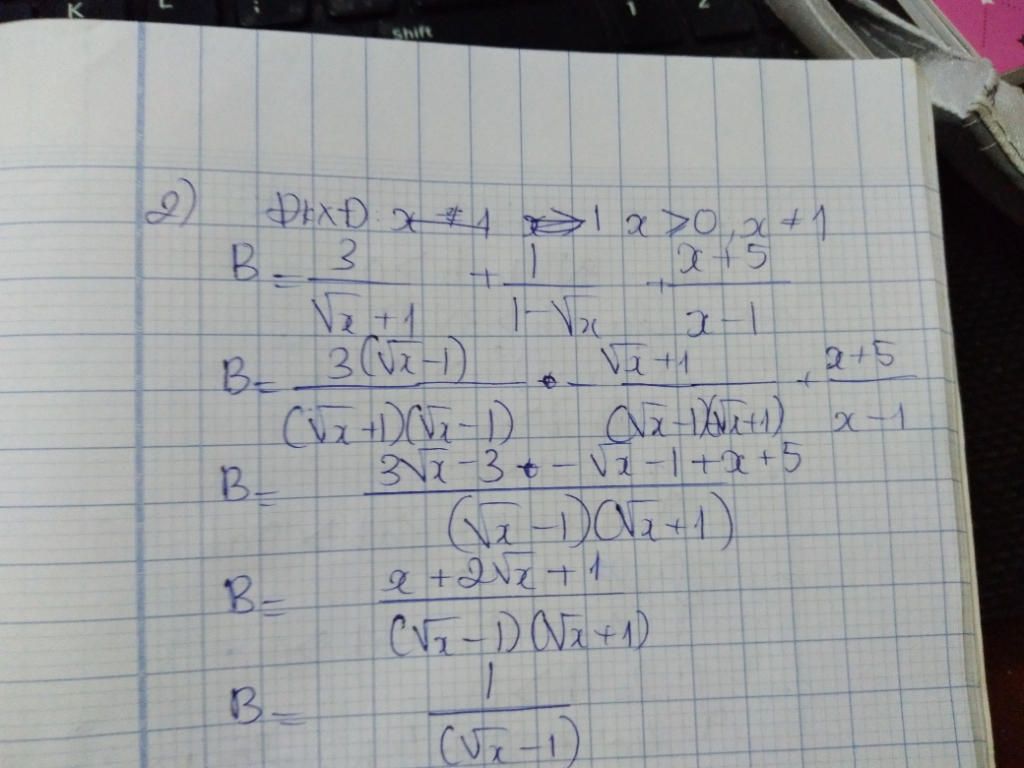 K L ; 1 2
shift
2) ĐKXĐ: x ≠ 1 x > 1 x > 0, x ≠ 1
B = 3/(√x + 1) + 1/(1 - √x) + (x + 5)/(x - 1)
B = 3(√x - 1)/((√x + 1)(√x - 1)) - (√x + 1)/((√x - 1)(√x + 1)) + (x + 5)/(x - 1)
B = (3√x - 3 - √x - 1 + x + 5)/((√x - 1)(√x + 1))
B = (x + 2√x + 1)/((√x - 1)(√x + 1))
B = 1/(√x - 1)